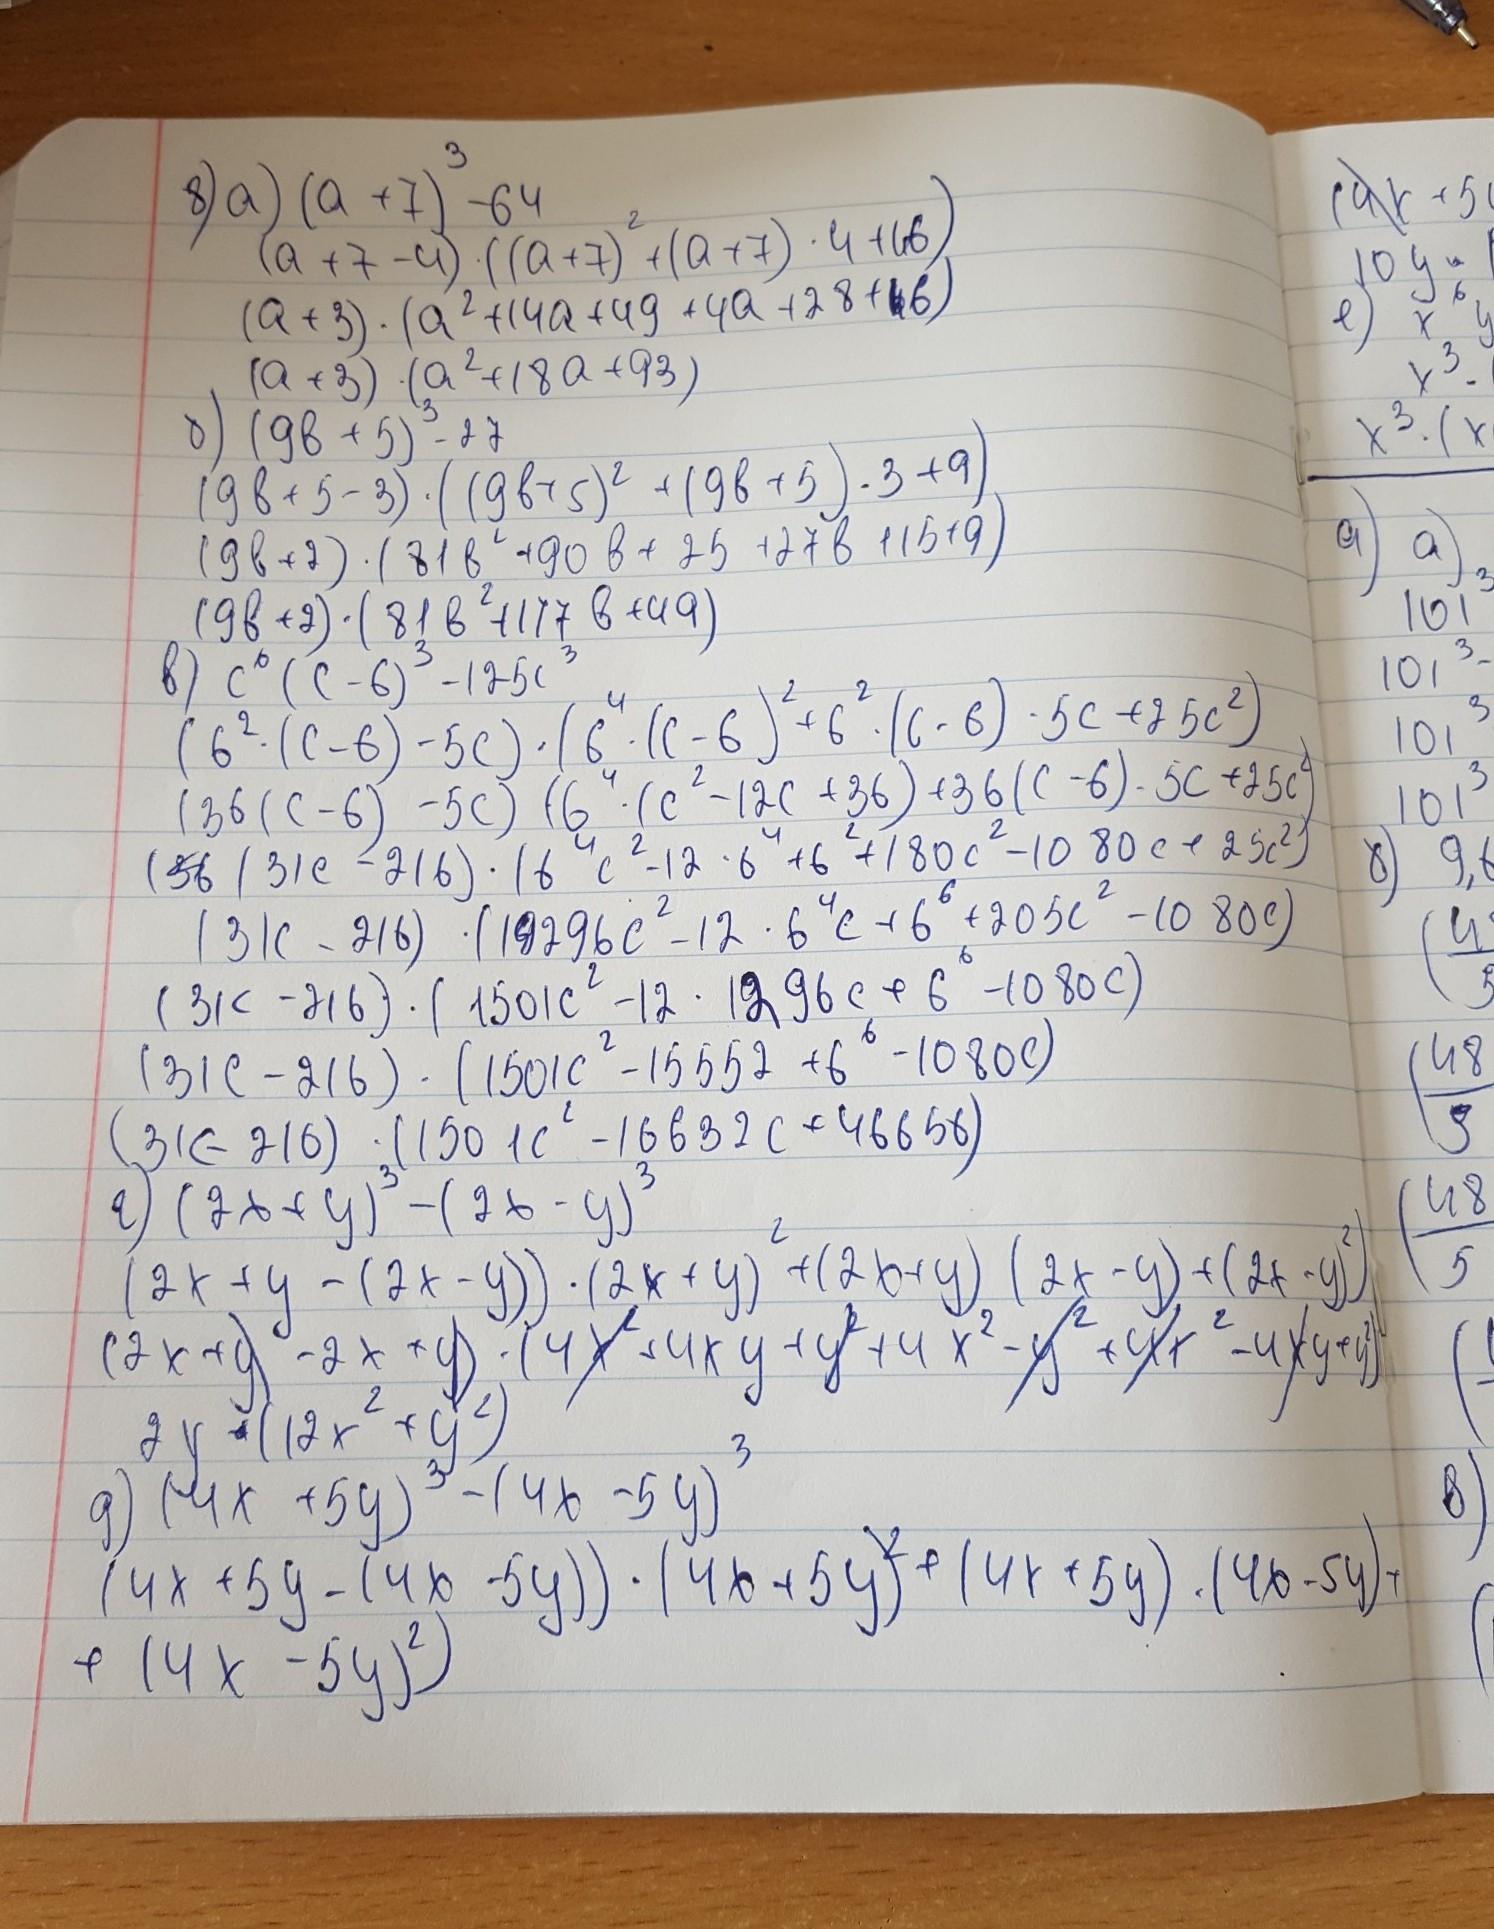 8) а) (a+7)³-64
(a+7-4)·((a+7)²+(a+7)·4+16)
(a+3)·(a²+14a+49+4a+28+16)
(a+3)·(a²+18a+93)
б) (9b+5)³-27
(9b+5-3)·((9b+5)²+(9b+5)·3+9)
(9b+2)·(81b²+90b+25+27b+15+9)
(9b+2)·(81b²+117b+49)
в) c⁶(c-6)³-125c³
(6²·(c-6)-5c)·(6⁴·(c-6)²+6²·(c-6)·5c+25c²)
(36(c-6)-5c)(6⁴·(c²-12c+36)+36(c-6)·5c+25c²
(31c-216)·(6⁴c²-12·6⁴+6²+180c²-1080c+25c²)
(31c-216)·(1296c²-12·6⁴c+6⁶+205c²-1080c)
(31c-216)·(1501c²-12·1296c+6⁶-1080c)
(31c-216)·(1501c²-15552+6⁶-1080c)
(31c-216)·(1501c²-16632c+46656)
г) (2x+y)³-(2x-y)³
(2x+y-(2x-y))·(2x+y)²+(2x+y)(2x-y)+(2x-y)²)
(2x+y-2x+y)·(4x²+4xy+y²+4x²-y²+4x²-4xy+y²)
2y·(12x²+y²)
д) (4x+5y)³-(4x-5y)³
(4x+5y-(4x-5y))·(4x+5y)²+(4x+5y)·(4x-5y)+
+(4x-5y)²)
10y·
е) x⁶y
x³·(
x³·(x
9) а)
101³
101³-
101³
101³
б) 9,6
(48/5
(48/5
(48/5
в)